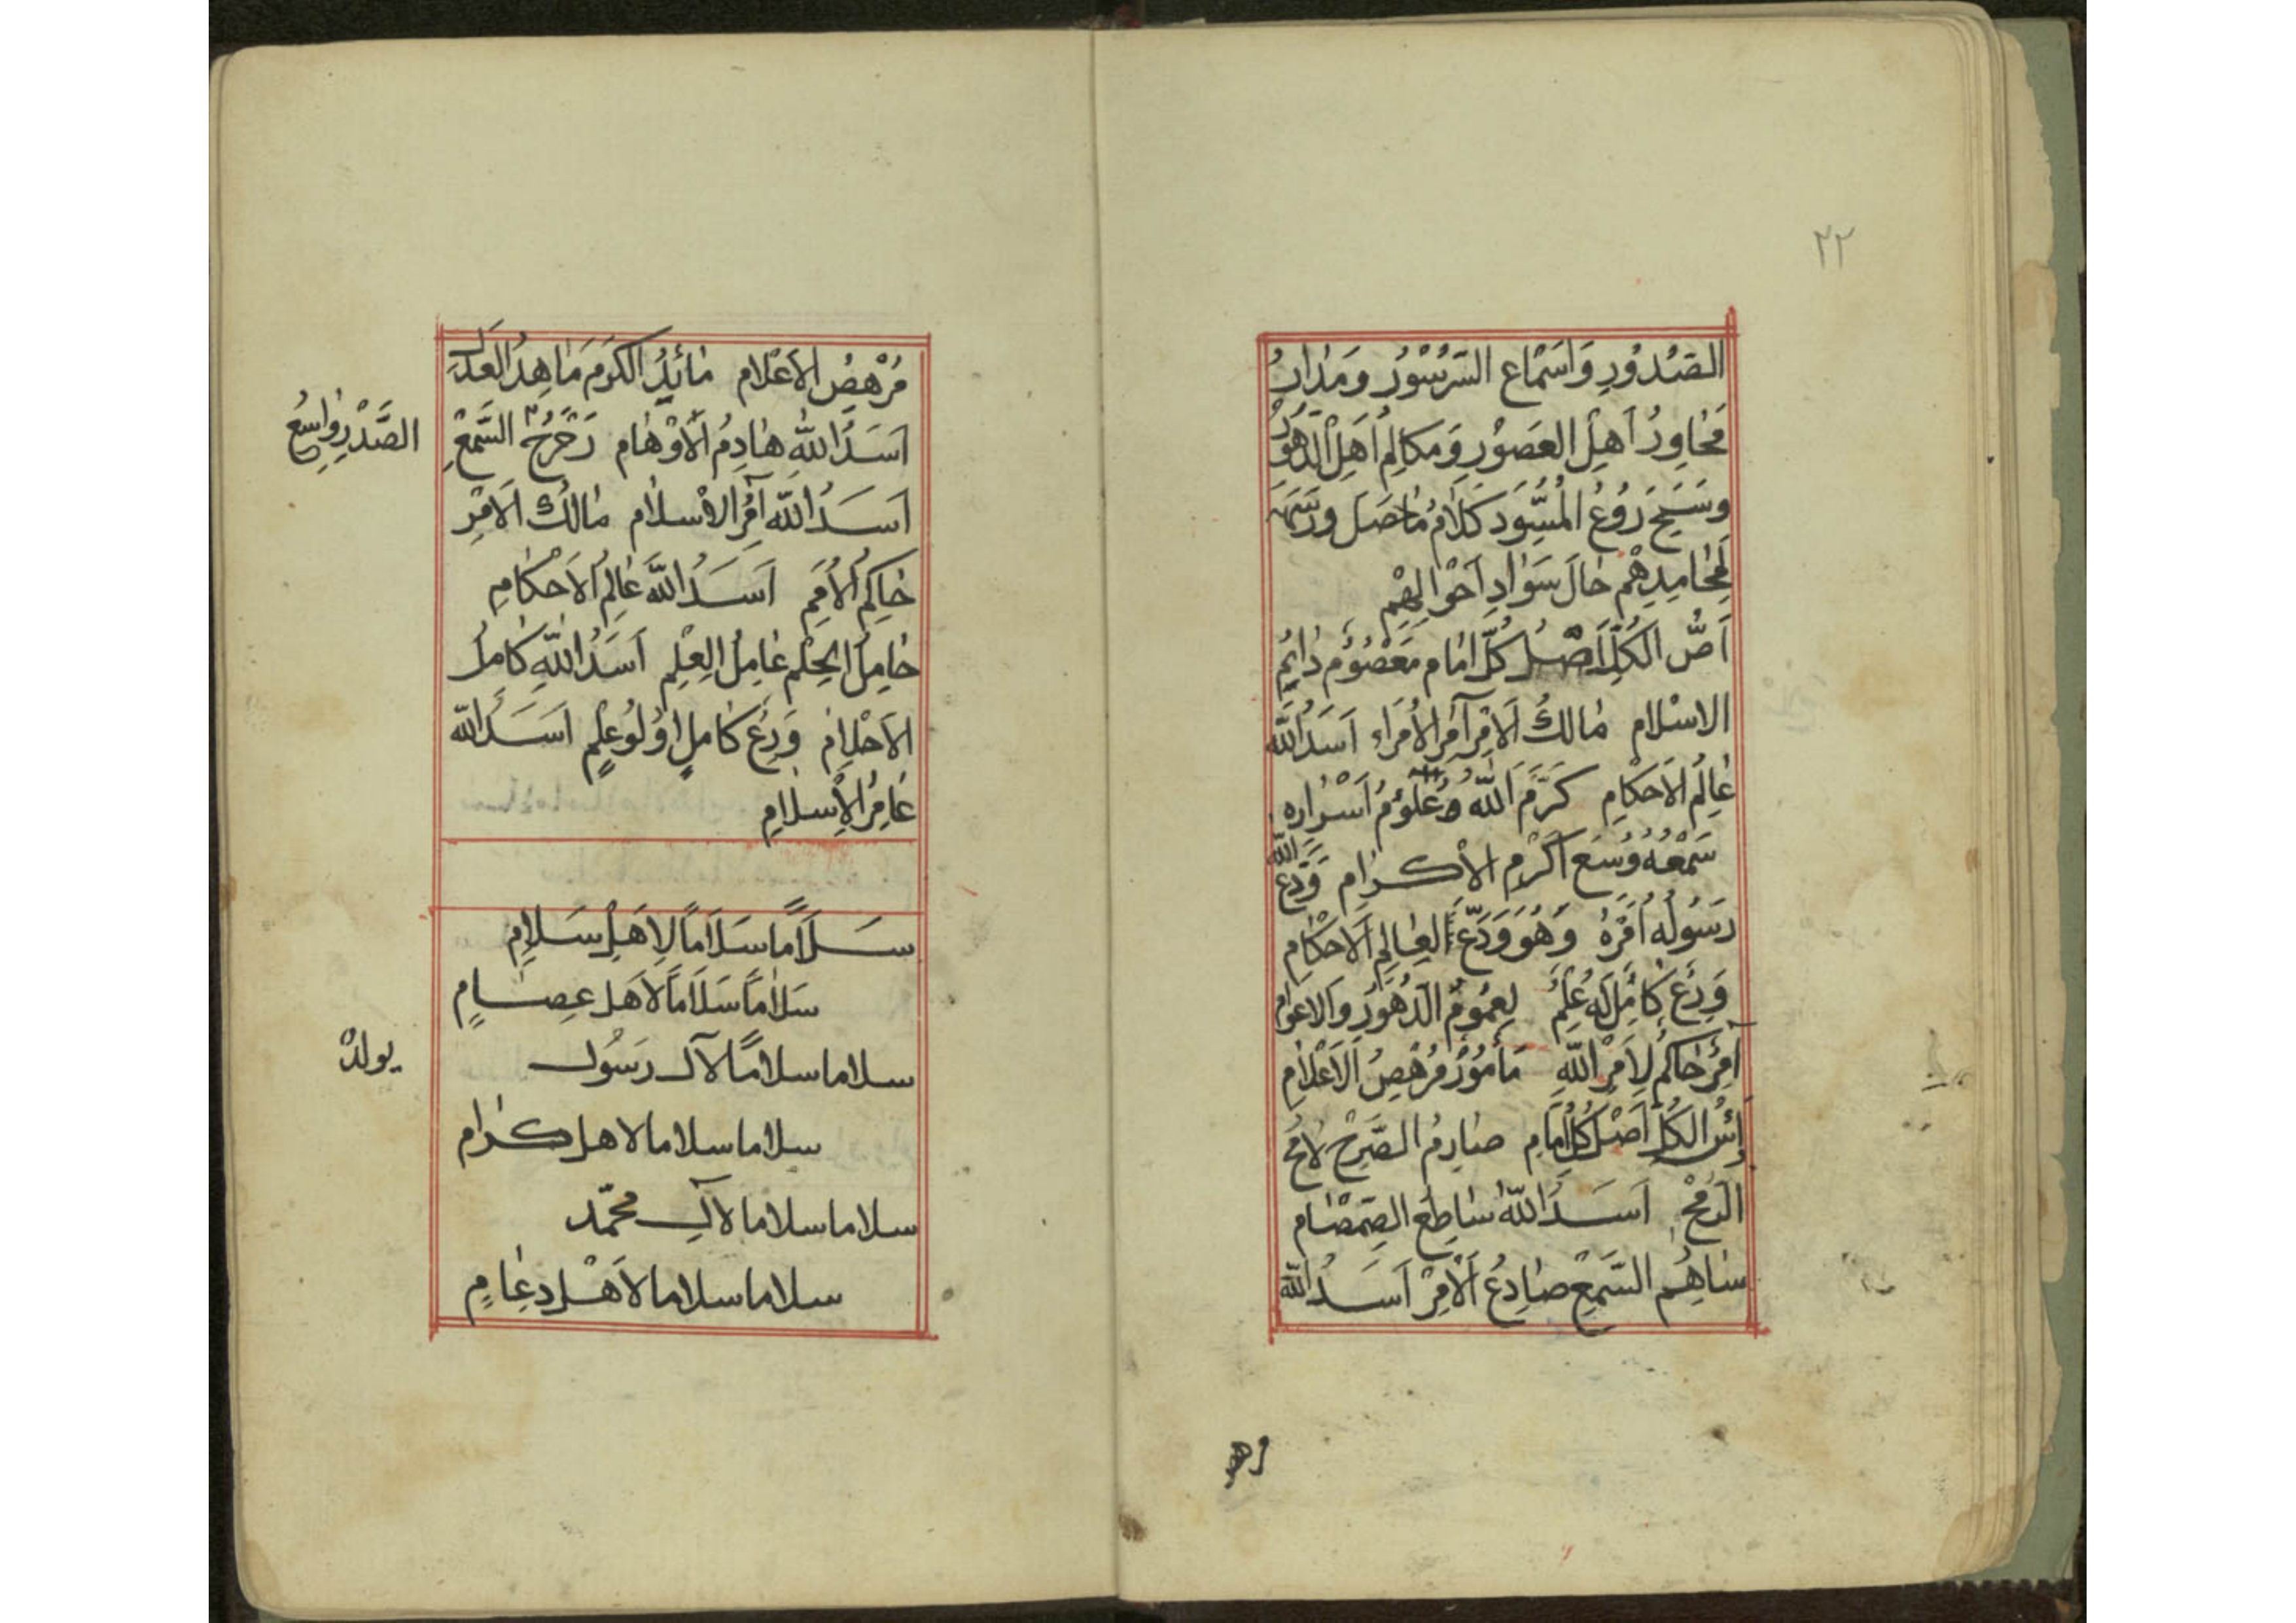 ٢٢
الصُدُورِ وَاَسْمَاعِ السُرُورِ وَمَدَارُ
مُحَاوِرُ اَهْلِ العُصُورِ وَمُكَالِمُ اَهْلِ الدُهُورِ
كَلَامُ مَا حَصَلَ
لِمَحَامِدِهِمْ حَالَ سَوَادِ اَحْوَالِهِمْ
اُسُّ الكُلِّ اَصْلُ كُلِّ اِمَامٍ مَعْصُومٍ دَائِمِ
الاسْلَامِ مَالِكُ الاَمْرِ آمِرُ الاُمَرَاءِ اَسَدُ اللّٰه
عَالِمُ الاَحْكَامِ كَرَّمَ اللّٰه عُلُومُ اَسْرَارِهِ
سَمْعُهُ وَسِعَ اَكْرَمُ الاكْرَامِ وَدَّعَ اللّٰه
رَسُولُهُ اَمْرَهُ وَهُوَ وَدَّعَ العَالِمَ الاَحْكَامِ
وَرِعٌ كَامِلٌ لَهُ عِلْمٌ لِعُمُومِ الدُهُورِ وَالاعْوَامِ
آمِرٌ حَاكِمٌ لِاَمْرِ اللّٰهِ مَأمُورٌ مُرْهِصُ الاَعْلَامِ
اُسُّ الكُلِّ اَصْلُ كُلِّ اِمَامٍ صَارِمُ الصَّرْحِ لامِحُ
الرُمْحِ اَسَدُ اللّٰه سَاطِعُ الصَمْصَامِ
سَاهِمُ السَّمْعِ صَادِعُ الاَمْرِ اَسَدُ اللّٰه
مُرْهِصُ الاَعْلَامِ مَائِدُ الكَرَمِ مَاهِدُ العَدْلِ
اَسَدُ اللّٰهِ هَادِمُ الاَوْهَامِ السَّمْعِ
الصَّدْرِ وَاسِعُ
اَسَدُ اللّٰه آمِرُ الاسْلَامِ مَالِكُ الاَمْرِ
حَاكِمُ الاُمَمِ اَسَدُ اللّٰه عَالِمُ الاَحْكَامِ
حَامِلُ الحِلْمِ عَامِلُ العِلْمِ اَسَدُ اللّٰهِ كَامِلُ
الاَحْلَامِ وَرِعٌ كَامِلٌ اُولُو عِلْمٍ اَسَدُ اللّٰه
عَامِرُ الاِسْلَامِ
سَلَامًا سَلَامًا لِاَهْلِ سَلَامٍ
سَلَامًا سَلَامًا لاَهل عِصَامٍ
سلاما سلامًا لآل رَسُول
يولدْ
سلاما سلاما لاهل كرام
سلاما سلاما لآل محمّد
سلاما سلاما لاَهْل دِعَامٍ